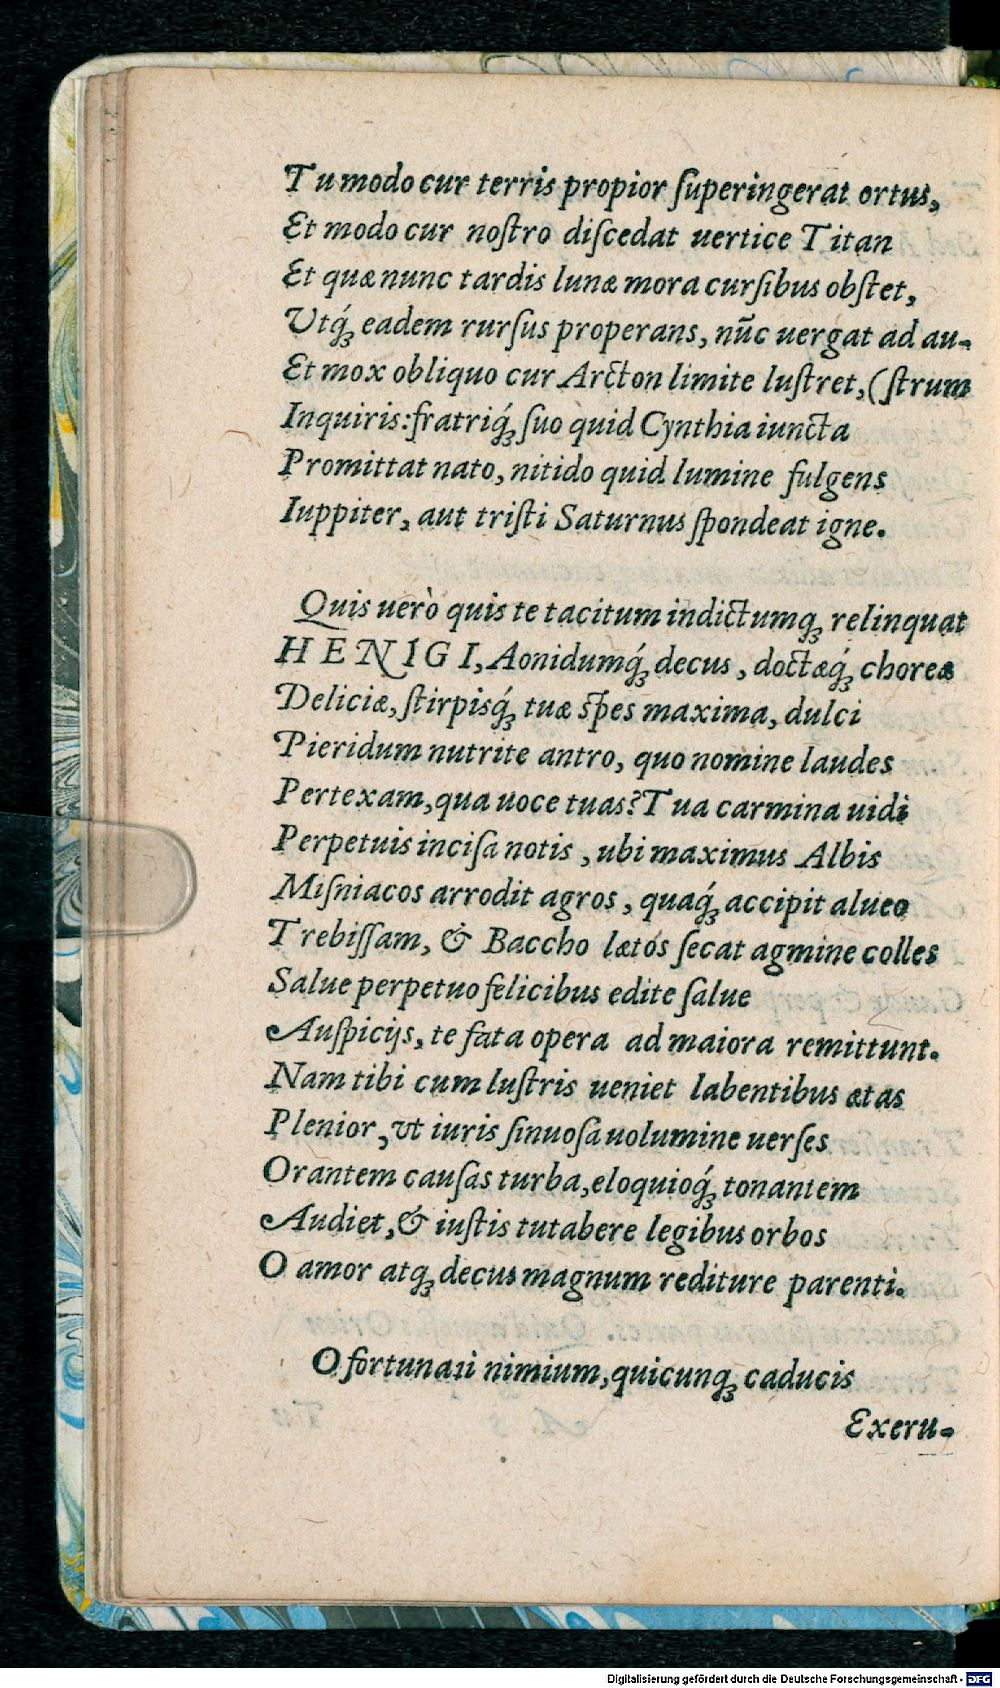 Tu modo cur terris propior superingerat ortus,
Et modo cur nostro discedat uertice Titan
Et quæ nunc tardis lunæ mora cursibus obstet,
Vtq́; eadem rursus properans, nūc uergat ad au-
Et mox obliquo cur Arcton limite lustret, (strum
Inquiris: fratriq́; suo quid Cynthia iuncta
Promittat nato, nitido quid lumine fulgens
Iuppiter, aut tristi Saturnus spondeat igne.
Quis uerò quis te tacitum indictumq; relinquat
HENIGI, Aonidumq́; decus, doctæq́; choreæ
Deliciæ, stirpisq́; tuæ spes maxima, dulci
Pieridum nutrite antro, quo nomine laudes
Pertexam, qua uoce tuas? Tua carmina uidi
Perpetuis incisa notis, ubi maximus Albis
Misniacos arrodit agros, quaq́; accipit alueo
Trebissam, & Baccho lætos secat agmine colles
Salue perpetuo felicibus edite salue
Auspicijs, te fata opera ad maiora remittunt.
Nam tibi cum lustris ueniet labentibus ætas
Plenior, vt iuris sinuosa uolumine uerses
Orantem causas turba, eloquioq́; tonantem
Audiet, & iustis tutabere legibus orbos
O amor atq; decus magnum rediture parenti.
O fortunati nimium, quicunq; caducis
Exeru-
Digitalisierung gefördert durch die Deutsche Forschungsgemeinschaft - DFG